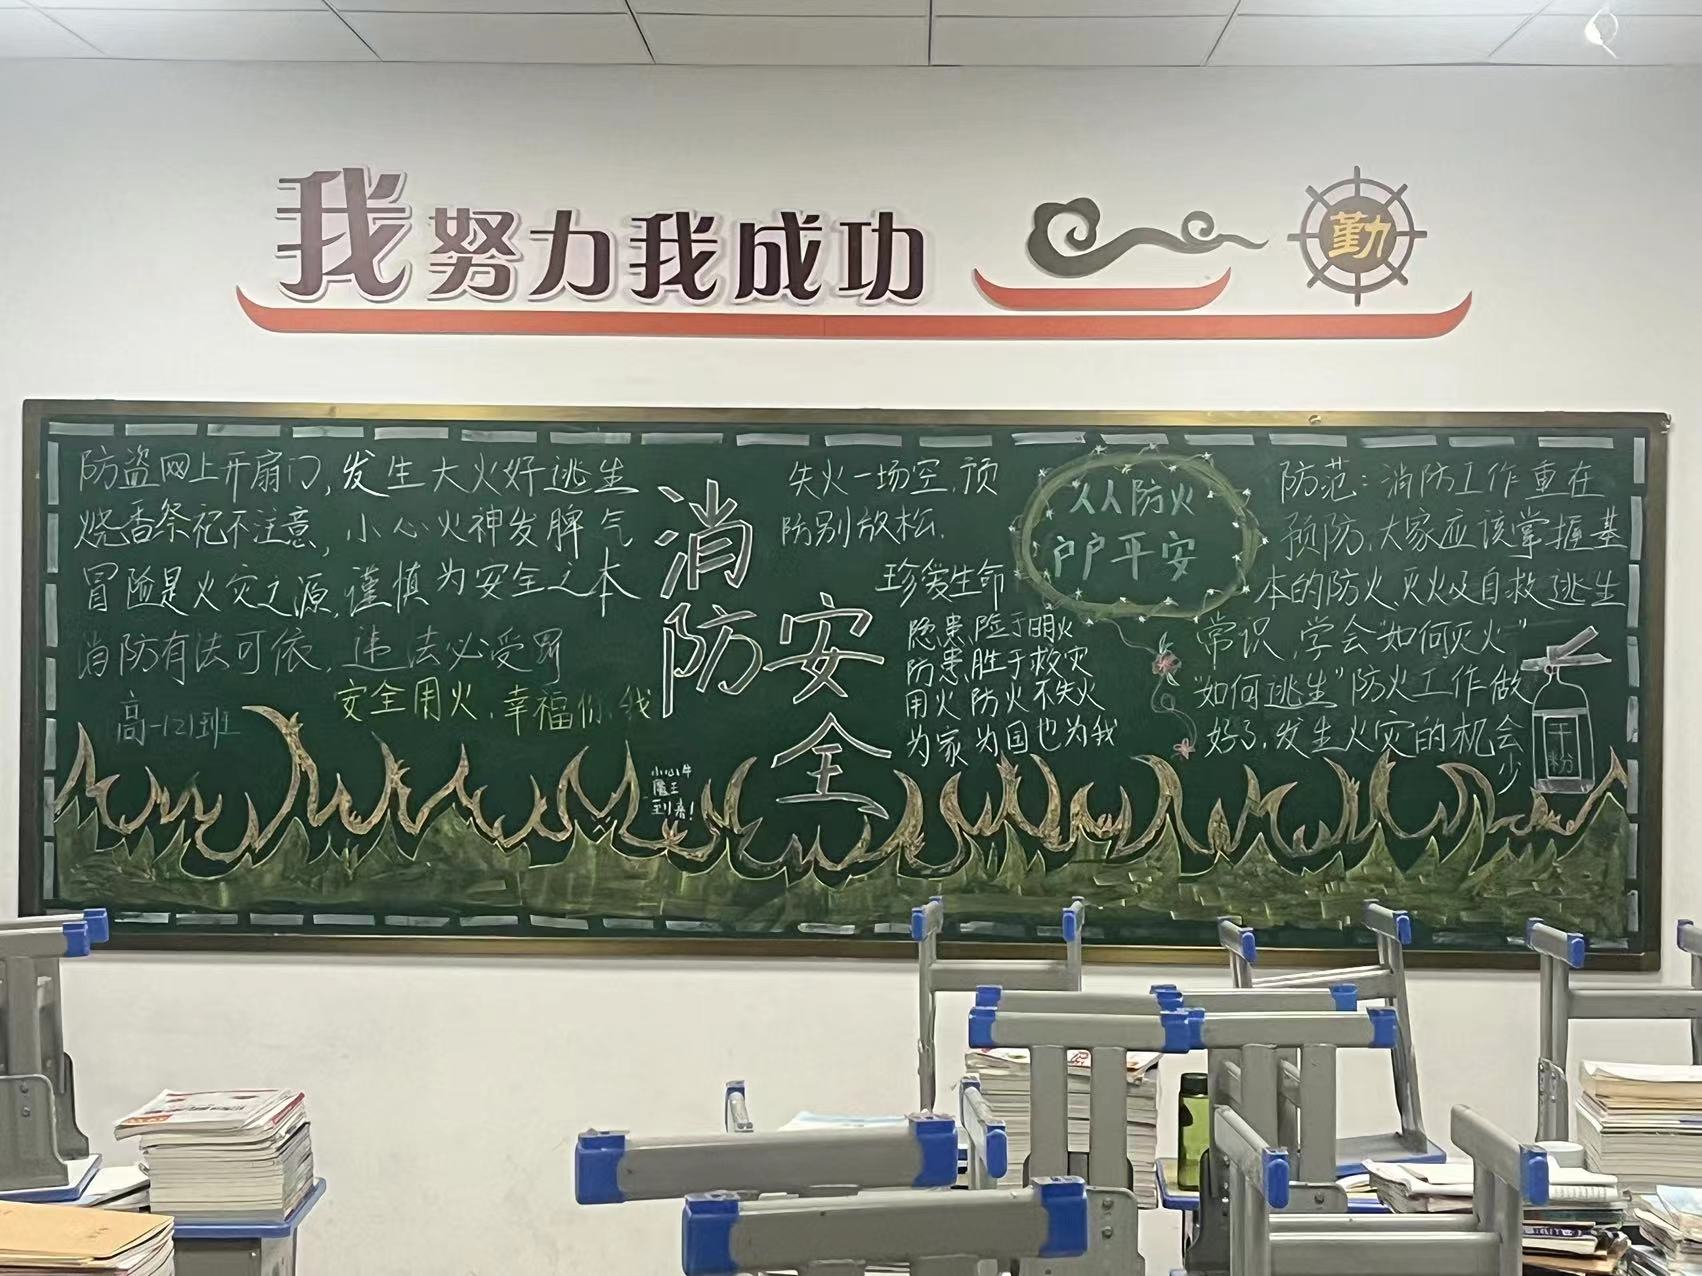 我努力我成功
勤
防盗网上开扇门,发生大火好逃生
烧香祭祀不注意,小心火神发脾气
冒险是火灾之源,谨慎为安全之本
消防有法可依,违法必受罚
安全用火,幸福你、我
高一121班
消防
安全
小心牛
魔王
到来!
失火一场空,预
防别放松.
珍爱生命
隐患险于明火
防患胜于救灾
用火防火不失火
为家为国也为我
人人防火
户户平安
防范:消防工作重在
预防,大家应该掌握基
本的防火、灭火及自救逃生
常识,学会"如何灭火"
"如何逃生"防火工作做
好了,发生火灾的机会
少
干粉